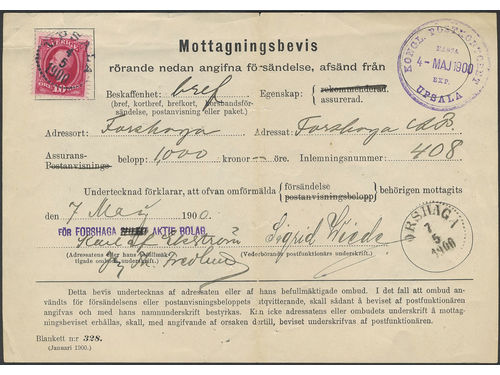 SVERIGE
UPSALA
4
5
1900
KONGL. POSTKONTORET
4-MAJ 1900
EXP.
UPSALA
Mottagningsbevis
rörande nedan angifna försändelse, afsänd från
Beskaffenhet: bref Egenskap: rekommenderad. assurerad.
(bref, kortbref, brefkort, korsbandsför-
sändelse, postanvisning eller paket.)
Adressort: Forshaga Adressat: Forshaga A.B.
Assurans-
Postanvisnings- belopp: 1,000 kronor — öre. Inlemningsnummer: 408
Undertecknad förklarar, att ofvan omförmälda försändelse postanvisningsbelopp behörigen mottagits
den 7 Maj 1900.
FÖR FORSHAGA AKTIE BOLAG.
Sigrid
(Adressatens eller hans befullmäk-
tigade ombuds underskrift.)
(Vederbörande postfunktionärs underskrift.)
FORSHAGA
7
5
1900
Detta bevis undertecknas af adressaten eller af hans befullmäktigade ombud. I det fall att ombud an-
vändts för försändelsens eller postanvisningsbeloppets utqvitterande, skall sådant å beviset af postfunktionären
angifvas och med hans namnunderskrift bestyrkas. Kan icke adressatens eller ombudets underskrift å mottag-
ningsbeviset erhållas, skall, med angifvande af orsaken dertill, beviset underskrifvas af postfunktionären.
Blankett n:r 328.
(Januari 1900.)